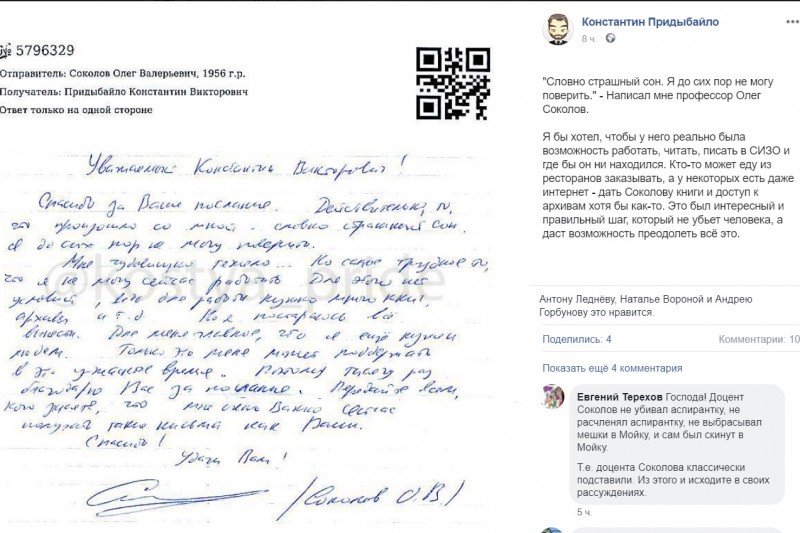 № 5796329
Отправитель: Соколов Олег Валерьевич, 1956 г.р.
Получатель: Придыбайло Константин Викторович
Ответ только на одной стороне
Уважаемый Константин Викторович!
Спасибо за Ваше послание. Действительно, то,
что произошло со мной - словно страшный сон.
Я до сих пор не могу поверить.
Мне чудовищно тяжело... Но самое трудное то,
что я не могу сейчас работать Для этого нет
условий, ведь для работы нужно много книг,
архивы и т.д. Но я постараюсь всё
вынести. Для меня главное, что я ещё нужен
людям. Только это меня может поддержать
в это ужасное время. Поэтому тысячу раз
благодарю Вас за послание. Передайте всем,
кого знаете, что мне очень важно сейчас
получать такие письма как Ваши.
Спасибо!
Удачи Вам!
/Соколов О.В./
@kostya_pride
Константин Придыбайло
8 ч.
"Словно страшный сон. Я до сих пор не могу
поверить." - Написал мне профессор Олег
Соколов.
Я бы хотел, чтобы у него реально была
возможность работать, читать, писать в СИЗО и
где бы он ни находился. Кто-то может еду из
ресторанов заказывать, а у некоторых есть даже
интернет - дать Соколову книги и доступ к
архивам хотя бы как-то. Это был интересный и
правильный шаг, который не убьет человека, а
даст возможность преодолеть всё это.
Антону Леднёву, Наталье Вороной и Андрею
Горбунову это нравится.
Поделились: 4
Комментарии: 10
Показать ещё 4 комментария
Евгений Терехов Господа! Доцент
Соколов не убивал аспирантку, не
расчленял аспирантку, не выбрасывал
мешки в Мойку, и сам был скинут в
Мойку.
Т.е. доцента Соколова классически
подставили. Из этого и исходите в своих
рассуждениях.
5 ч.